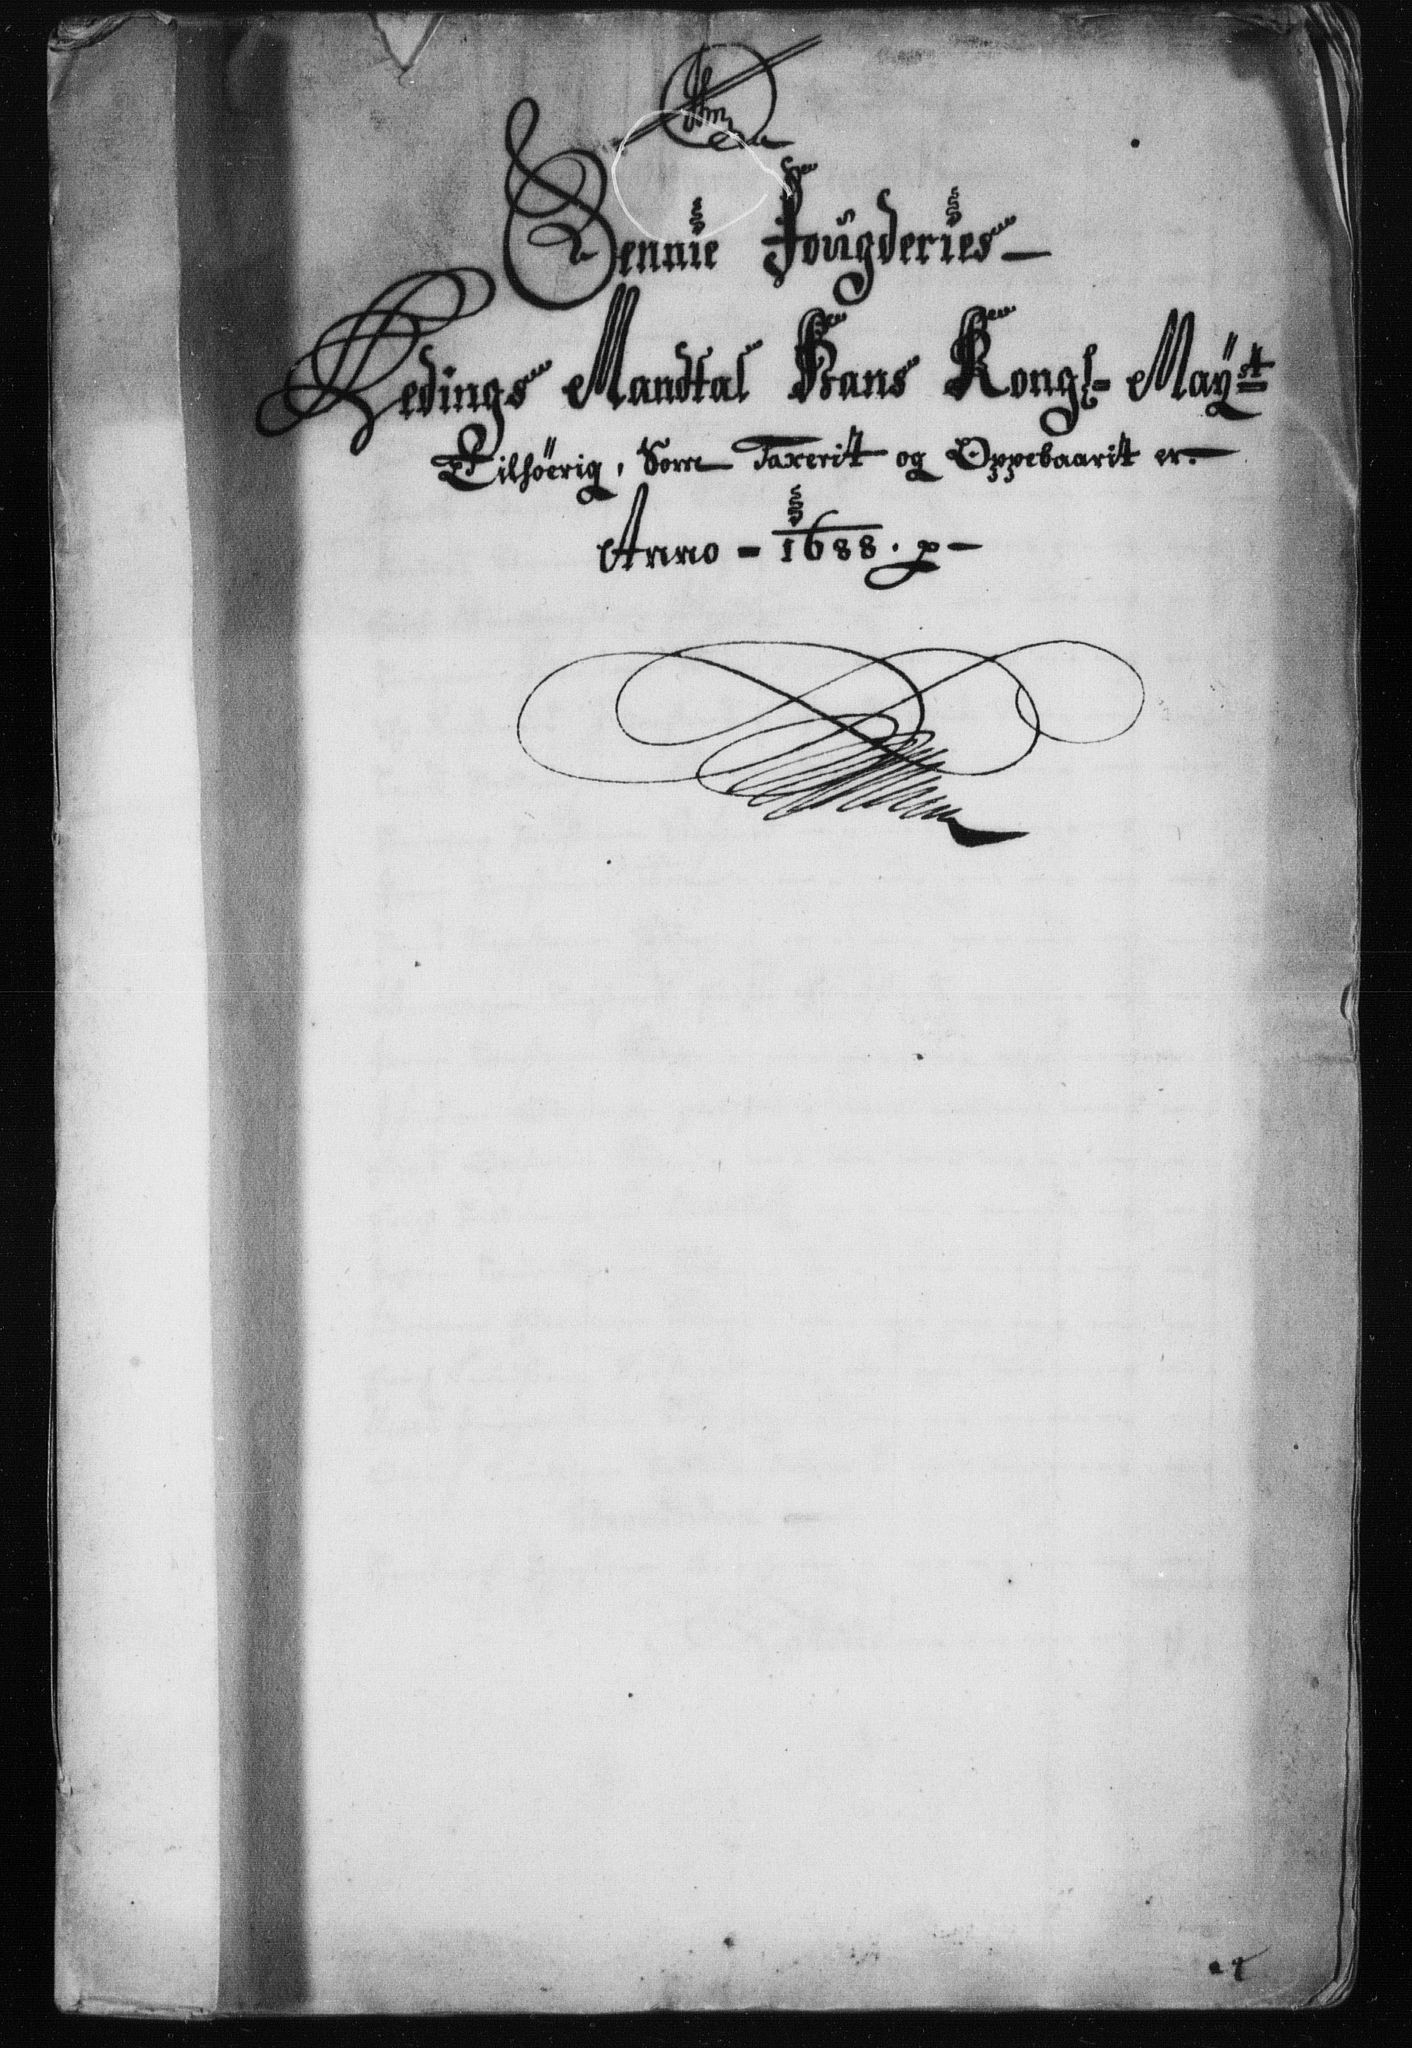 Sennie Fougderies
Ledings Mandtal Hans Kongl: Maÿst
Tilhöerig, Som Taxerit og Oppebaarit er.
Anno = 1688. p